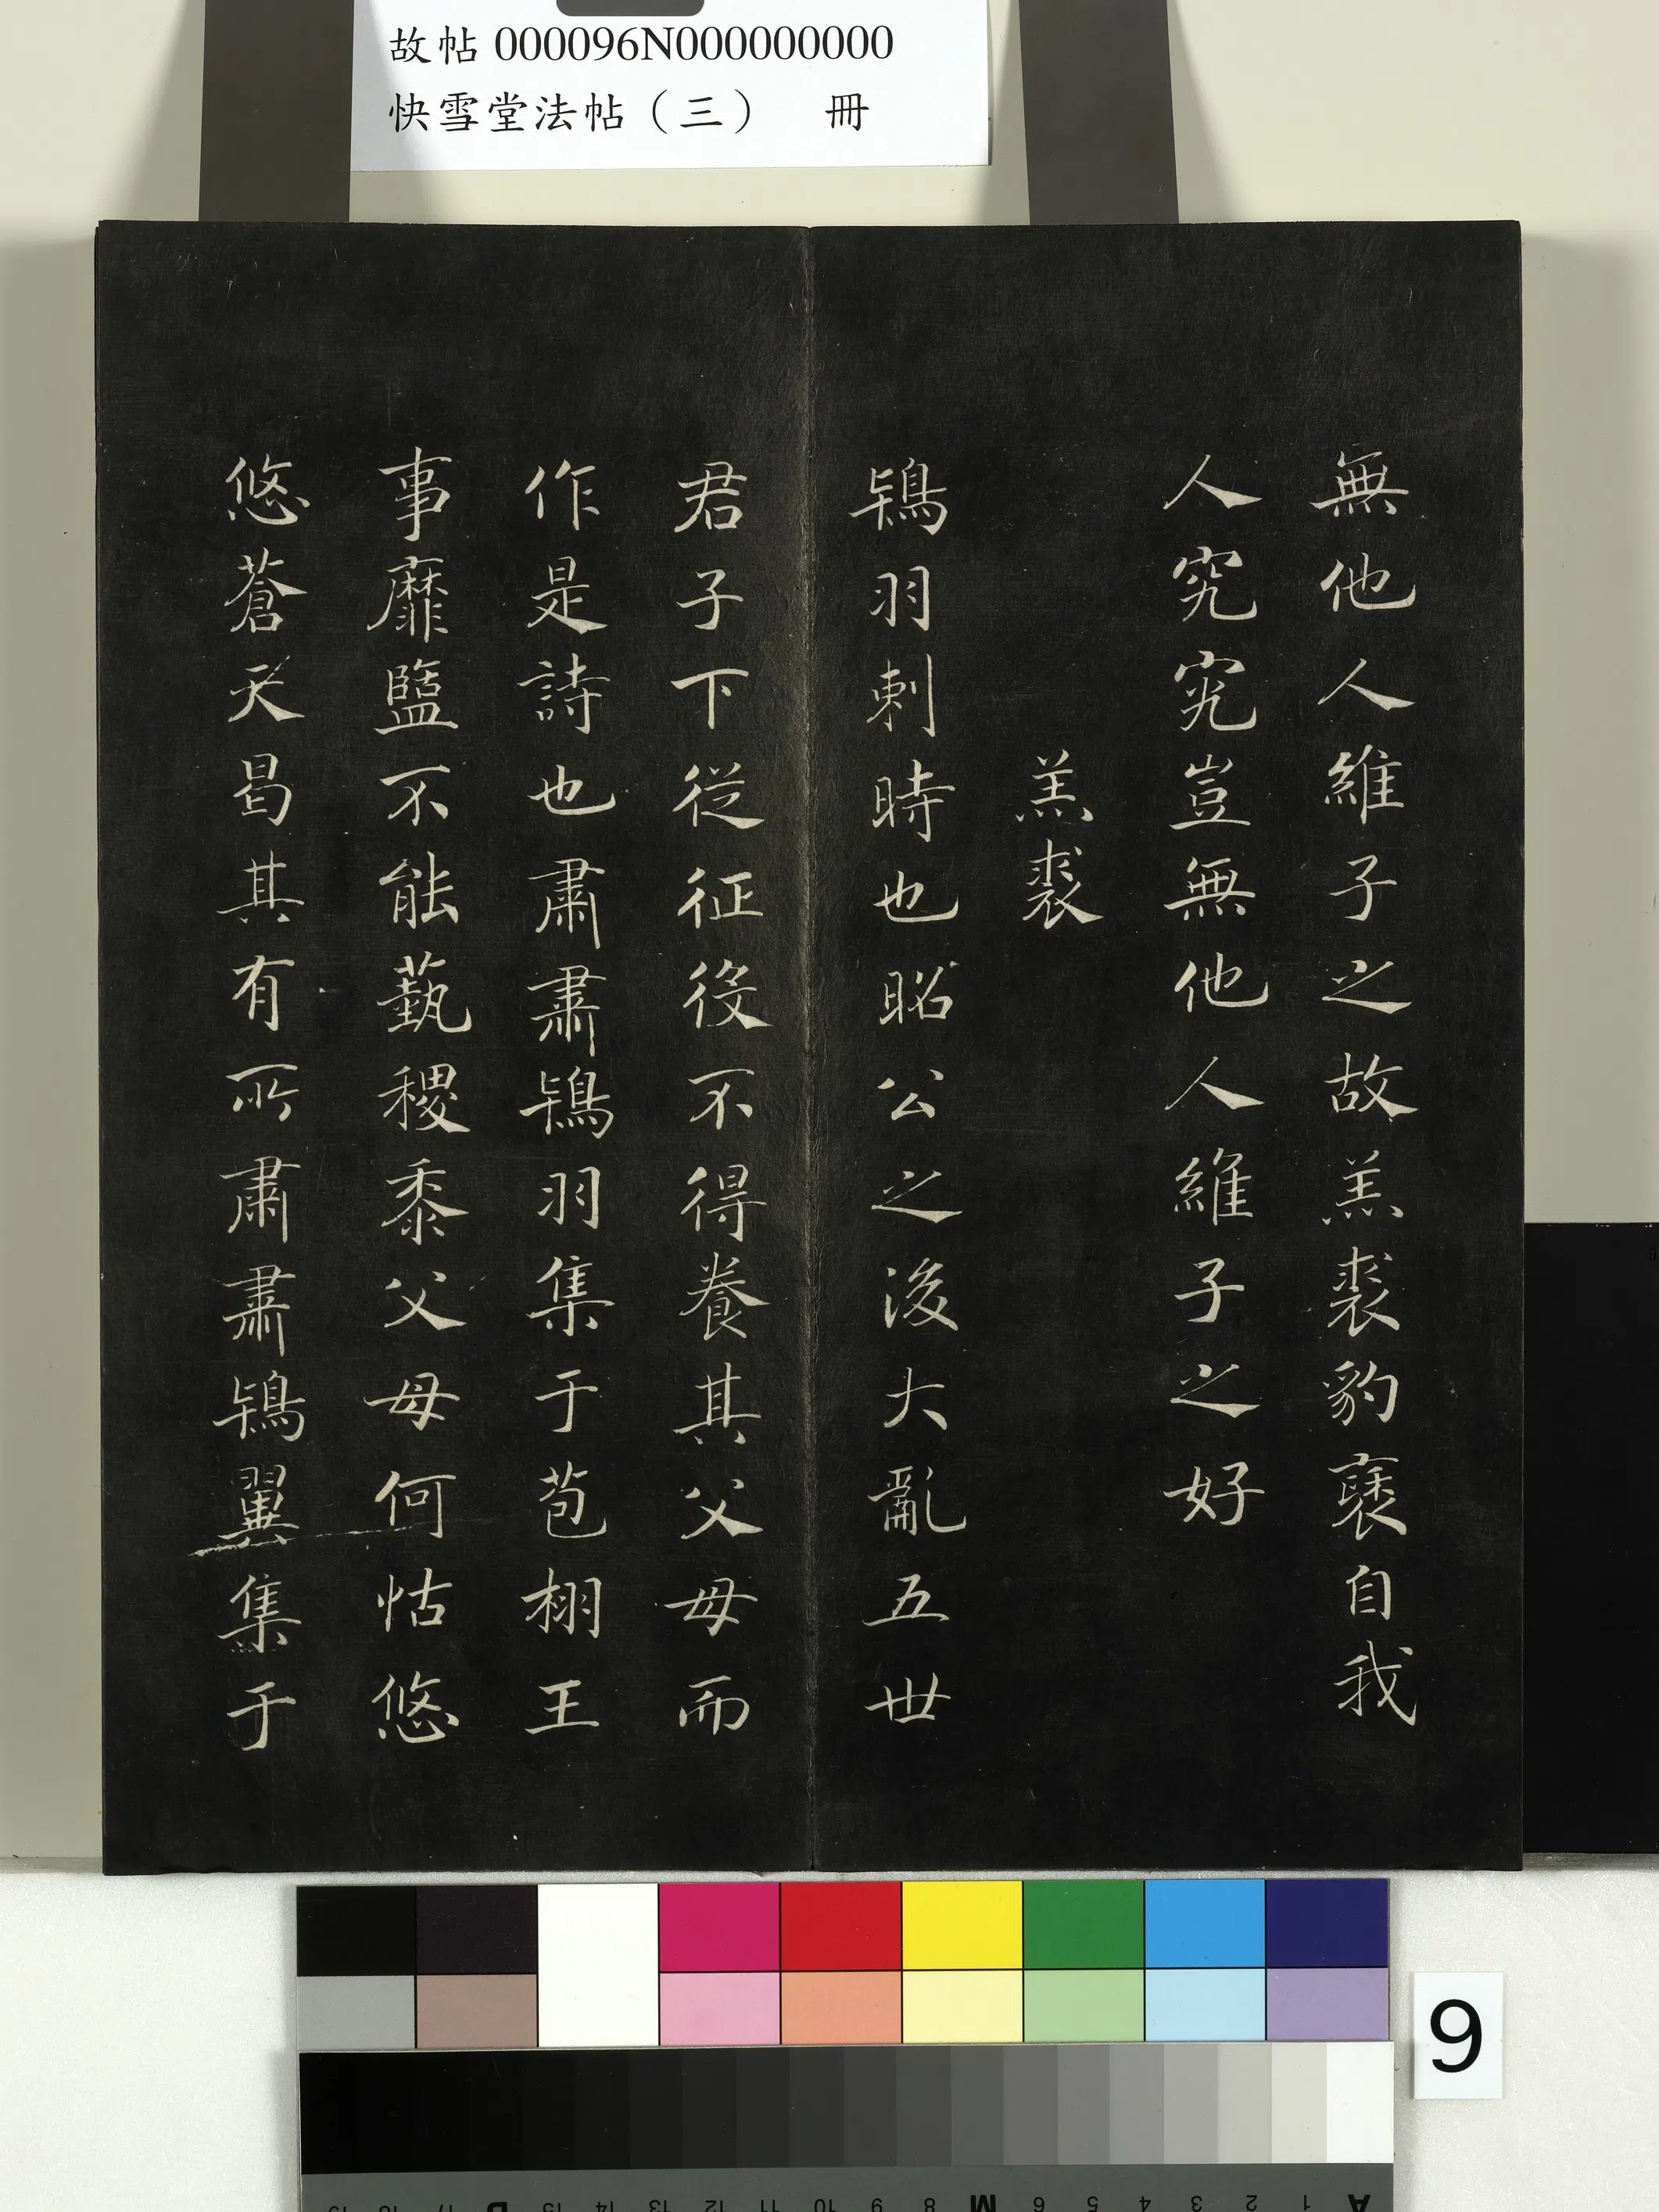 故帖 000096N000000000
快雪堂法帖（三） 冊
無他人維子之故羔裘豹褎自我
人究究豈無他人維子之好
羔裘
鴇羽刺時也昭公之後大亂五世
君子下從征役不得養其父母而
作是詩也肅肅鴇羽集于苞栩王
事靡盬不能蓺稷黍父母何怙悠
悠蒼天曷其有所肅肅鴇翼集于
9
A 1 2 3 4 5 6 M 8 9 10 11 12 13 14 15 B 17 18 19